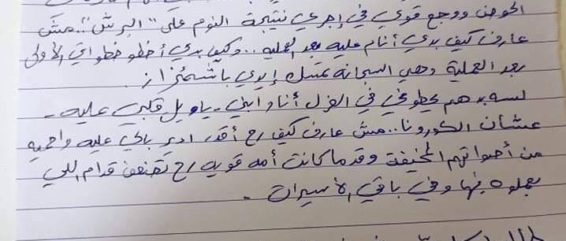 الحوض ووجع قوي في إجري نتيجة النوم على "البرش".. مش
عارف كيف بدي أنام عليه بعد العملية.. وكيف بدي أخطو خطواتي الأولى
بعد العملية وهي السجانة تمسك إيدي باشمئزاز.
لسه بدهم يحطوني في العزل أنا وابني - ياويل قلبي عليه -
عشان الكورونا.. مش عارف كيف رح أقدر ادير بالي عليه واحميه
من أصواتهم المخيفة وقد ما كانت أمه قويه رح تضعف قدام اللي
بعملوه فيها وفي باقي الأسيرات -